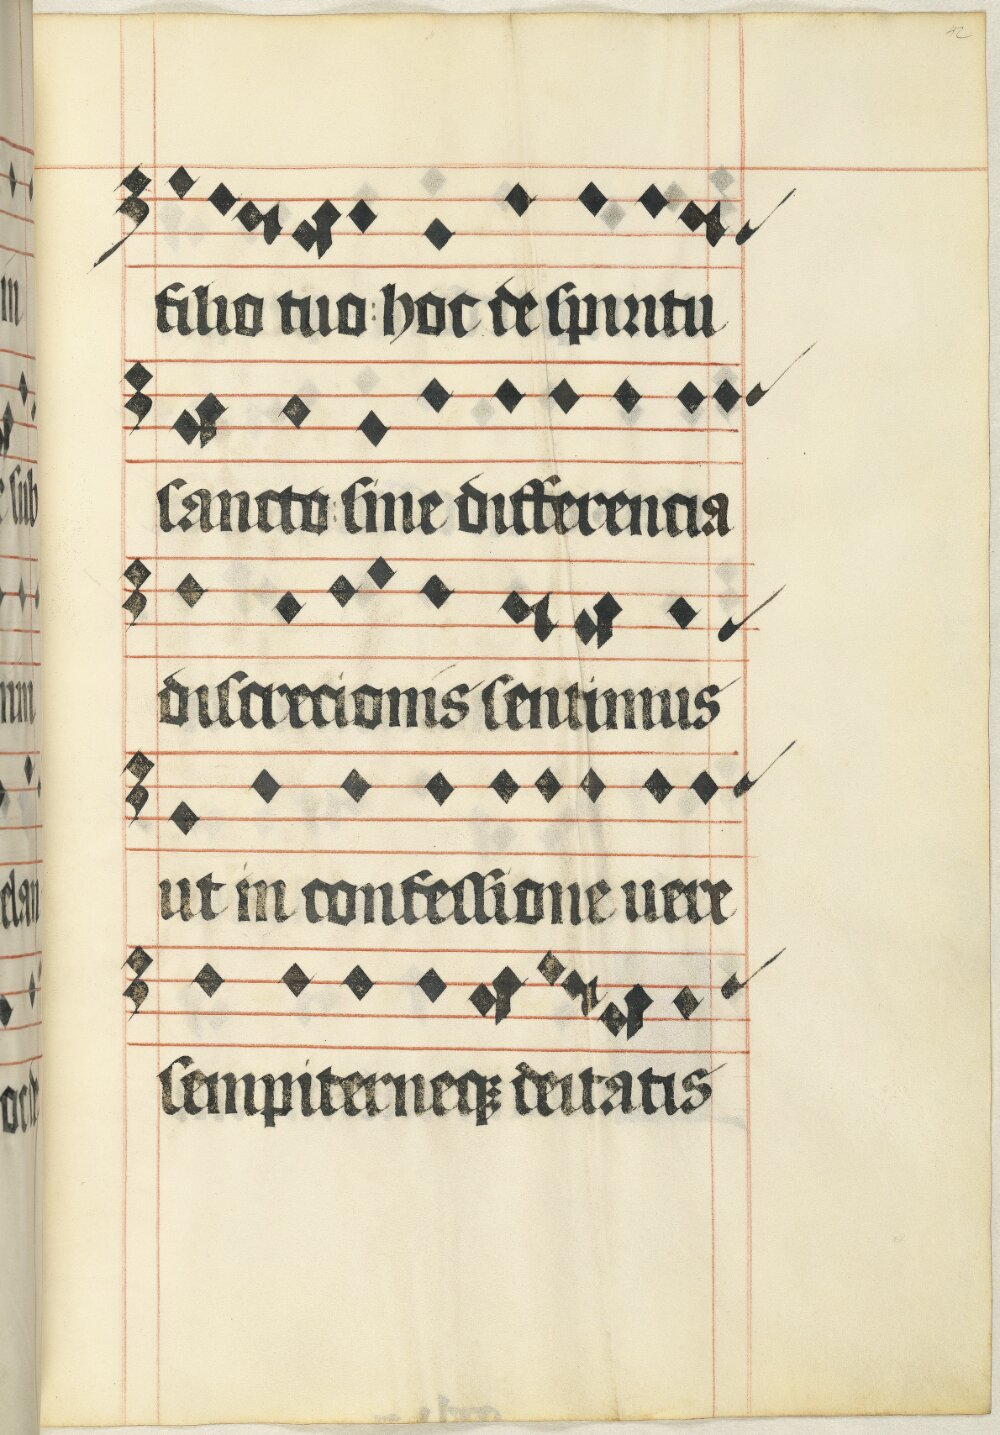 42
filio tuo : hoc de spiritu
sancto : sine differencia
discrecionis sentimus
ut in confessione uere
sempiterneqꝫ deitatis